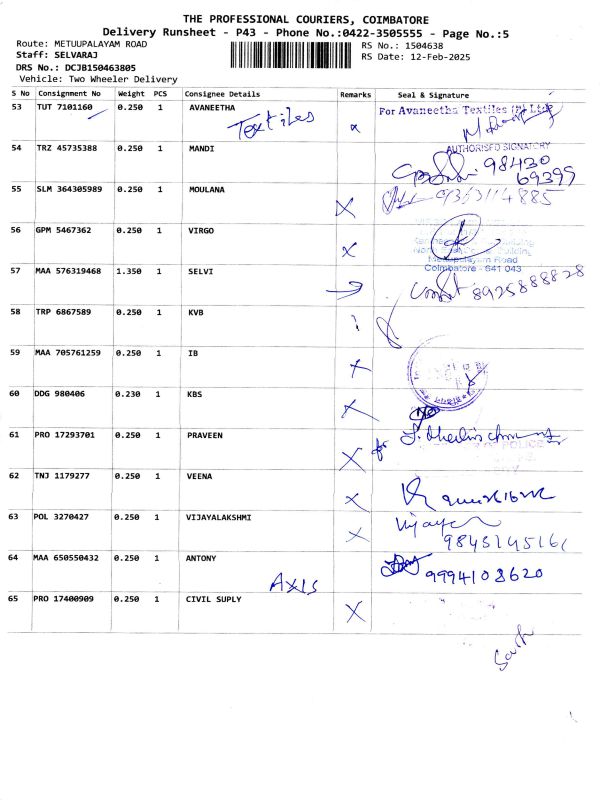 THE PROFESSIONAL COURIERS, COIMBATORE
Delivery Runsheet - P43 - Phone No.:0422-3505555 - Page No.:5
Route: METUUPALAYAM ROAD
RS No.: 1504638
Staff: SELVARAJ
RS Date: 12-Feb-2025
DRS No.: DCJB150463805
Vehicle: Two Wheeler Delivery
S No Consignment No Weight PCS Consignee Details Remarks Seal & Signature
53 TUT 7101160 0.250 1 AVANEETHA For Avaneetha Textiles (P) Ltd
Textiles
AUTHORISED SIGNATORY
54 TRZ 45735388 0.250 1 MANDI 98430
69399
55 SLM 364305989 0.250 1 MOULANA 9363114885
56 GPM 5467362 0.250 1 VIRGO
Mettupalayam Road
Coimbatore - 641 043
57 MAA 576319468 1.350 1 SELVI 8925888828
58 TRP 6867589 0.250 1 KVB
59 MAA 705761259 0.250 1 IB
60 DDG 980406 0.230 1 KBS
61 PRO 17293701 0.250 1 PRAVEEN for
OF POLICE
62 TNJ 1179277 0.250 1 VEENA
63 POL 3270427 0.250 1 VIJAYALAKSHMI Vijaya
64 MAA 650550432 0.250 1 ANTONY 9994108620
AXIS
65 PRO 17400909 0.250 1 CIVIL SUPLY